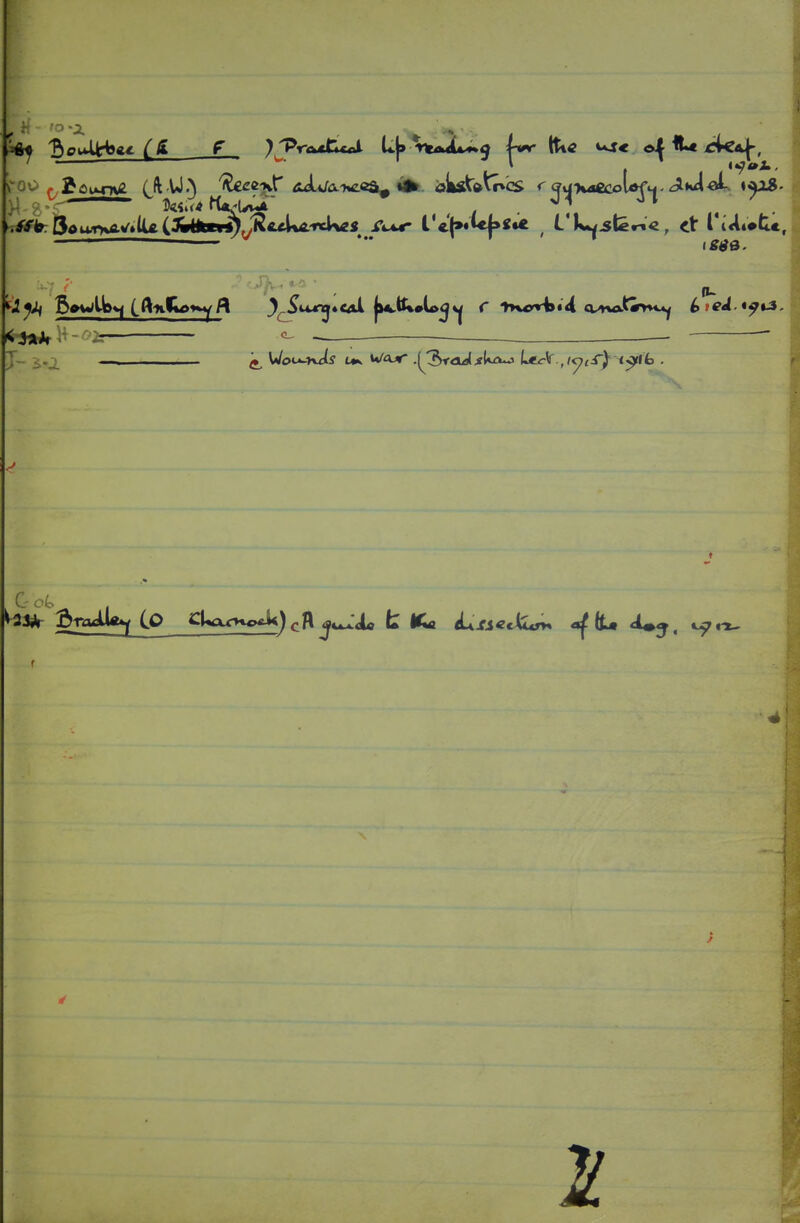 H - 10-2
Boultbee (E F ) Practical lip reading for the use of the deaf, 1902.
Bourne (A.W.) Recent advances in obstetrics & gynaecology. 2nd ed. 1928.
H-8-5 Désiré Magloire
Bourneville ( ) Recherches sur l'épilepsie, l'hystérie, et l'idiotie, 1888.
Bowlby (Anthony A ) Surgical pathology & morbid anatomy 6th ed. 1913.
— — Wounds in war. (Bradshaw Lect., 1915) 1916.
Bradley (O Charnock) A guide to the dissection of the dog, 1912.